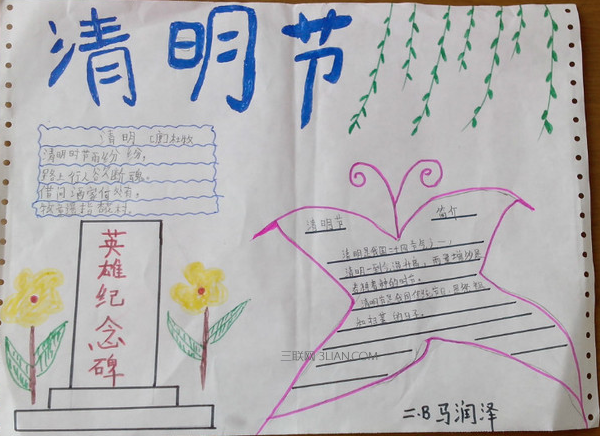 清明节
清明 [唐]杜牧
清明时节雨纷纷，
路上行人欲断魂。
借问酒家何处有，
牧童遥指村。
英雄纪念碑
清明节 简介
清明是我国二十四节气之一，
清明一到气温升高，雨量增多是
春耕春种的时节。
清明节是我国传统节日，是祭祖
和扫墓的日子。
三联网 3LIAN.COM
二.B 马润泽